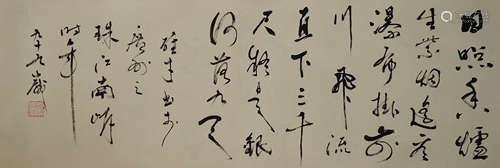 日照香爐
生紫煙遙看
瀑布掛前
川飛流
直下三千
尺疑是銀
河落九天
書於
廣州之
珠江南岸
時年
九十九歲